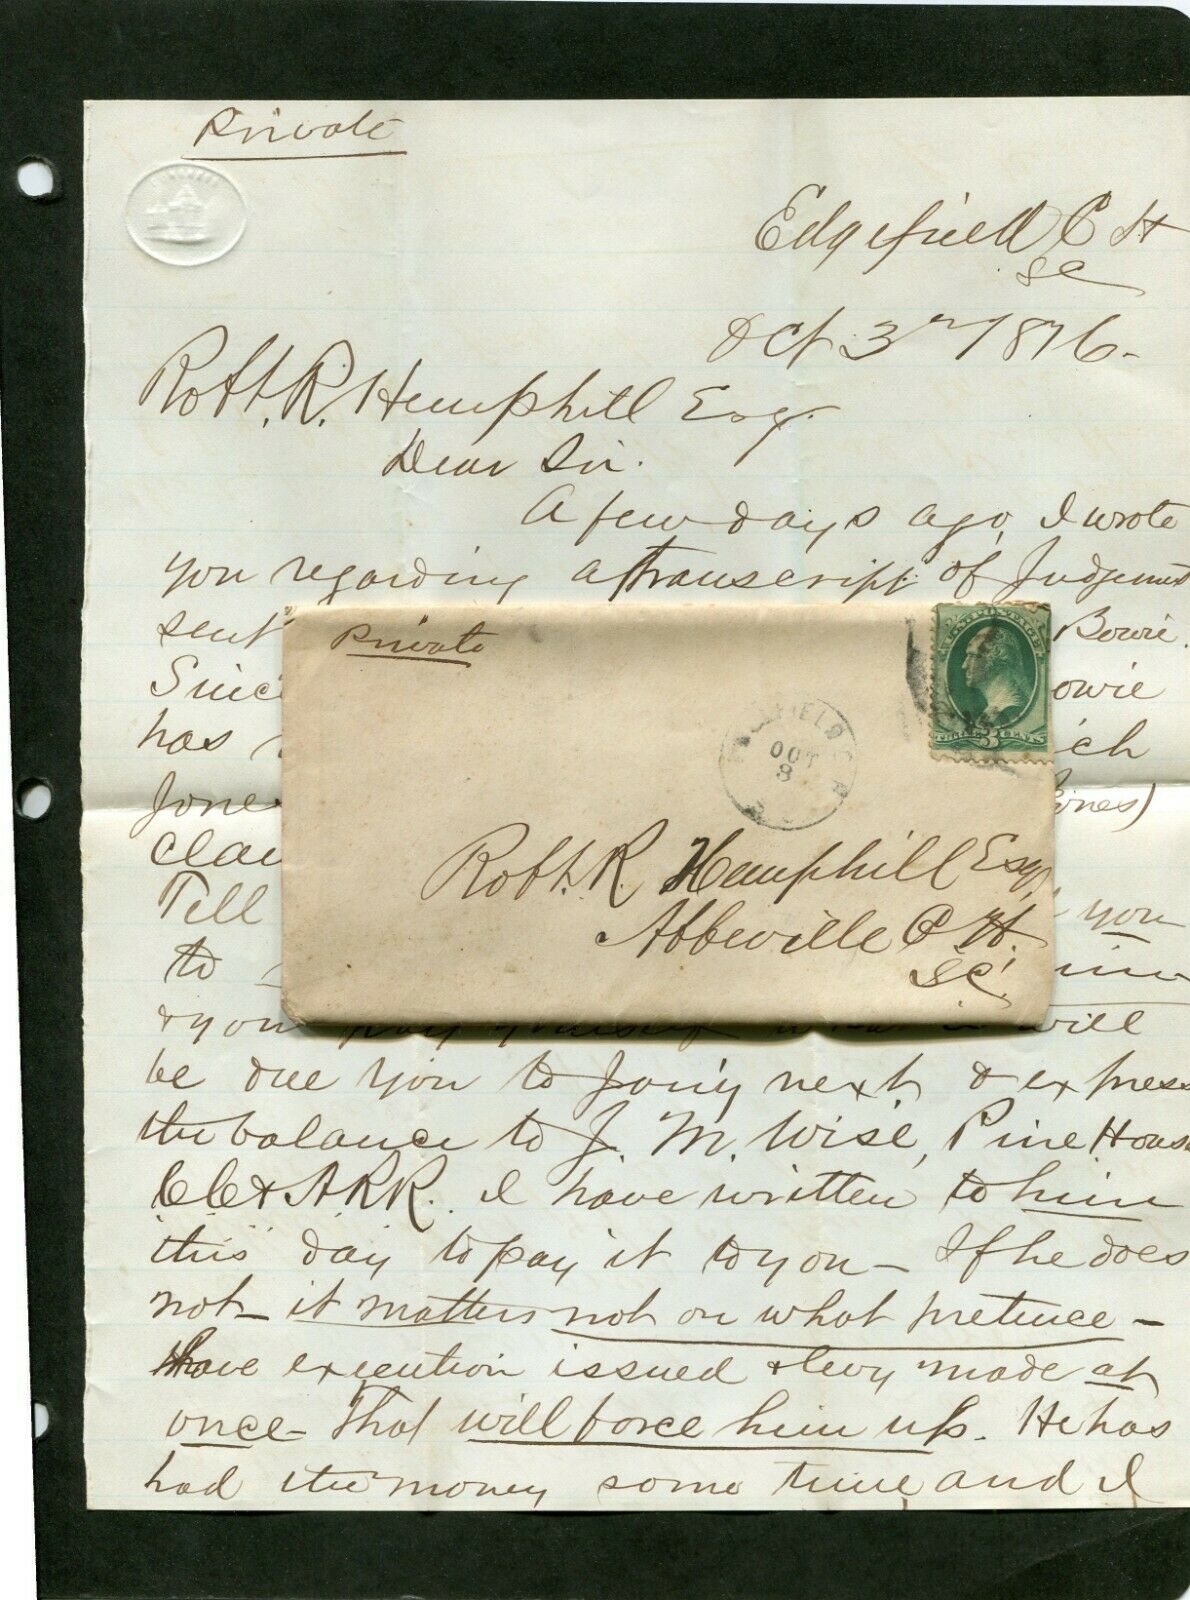 Private
Edgefield C H
SC
Oct 3rd 1876-
Robt. R. Hemphill Esq.
Dear Sir.
A few days ago, I wrote
you regarding a transcript of Judgement
sent Bowie.
Since owie
has ich
Jones ones)
Clai
Tell you
to
& you pay yourself will
be due you to &express
the balance to J. M. Wise, Pine House
CC& ARR. I have written to him
this day to pay it to you - If he does
not - it matters not on what pretence -
have execution issued & levy made at
once - That will force him up. He has
had the money some time and I
Private
EDGEFIELD C H
OCT
3
THREE 3 CENTS
Robt. R. Hemphill Esq,
Abbeville C H.
S.C.